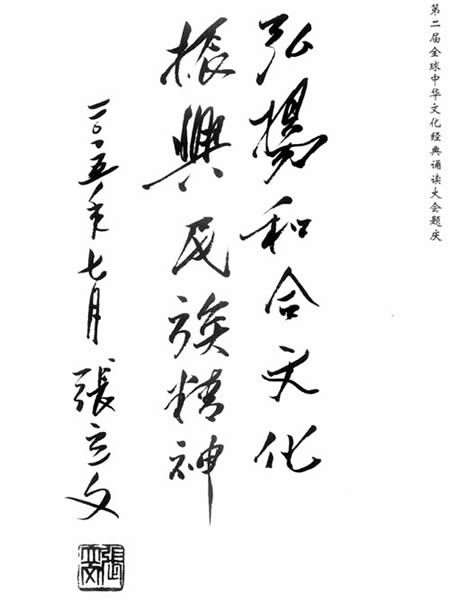 第二届全球中华文化经典诵读大会题庆
弘揚和合文化
振興民族精神
二〇一五年七月 張立文
張立文